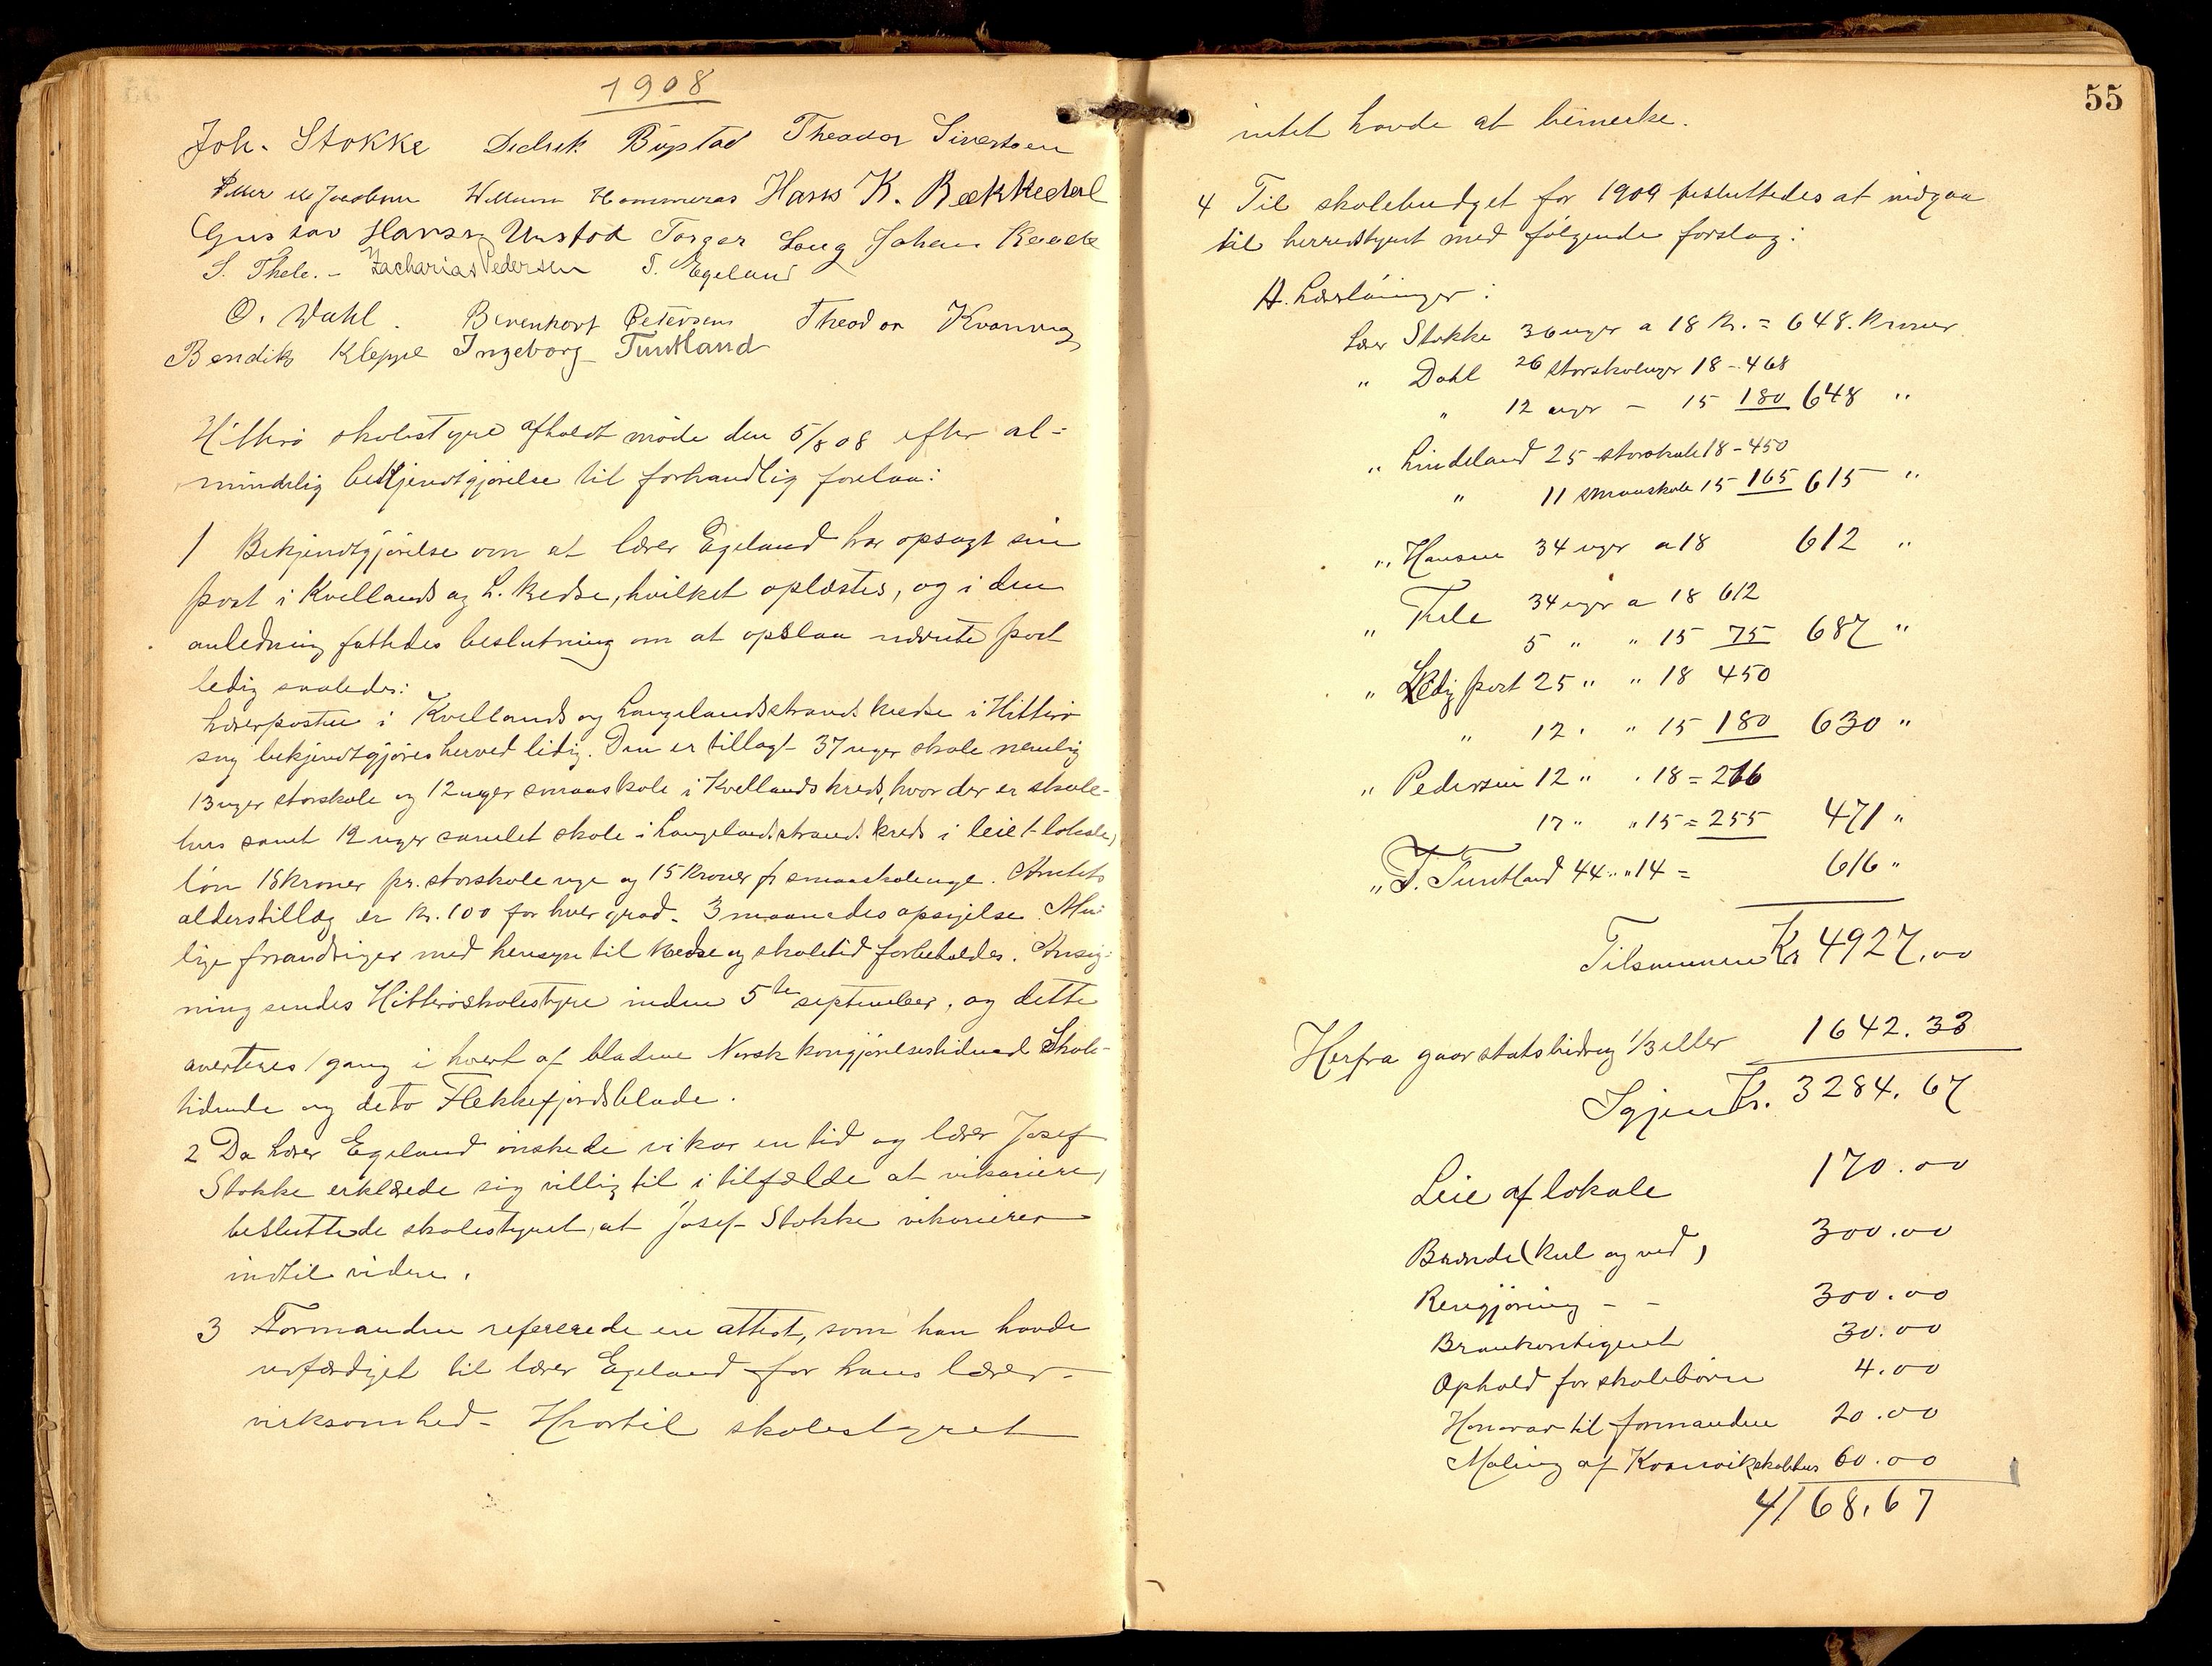 1908
Joh. Stokke Didrik Bøgstad Theodor Sivertsen
Peder M Jacobsen Willum Hammeraas Hans K. Rækkedal
Gustav Hansen Unstød Torger Log Johan Raade
S. Thele. - Zacharias Pedersen T. Egeland
O. Wahl. Berenhart Petersen Theodor Kvanvig
Bendik Kleppe Ingeborg Tuntland
Hitterø skolestyre afholdt møde den 5/8 08 efter al-
mindelig bekjendtgjørelse til forhandlig forelaa:
1 Bekjendtgjørelse om at lærer Egeland har opsagt sin
post i Kvellands og L. kredse, hvilket oplæstes, og i den
anledning fattedes beslutning om at opslaa nævnte post
ledig saaledes:
Lærerposten i Kvellands og Langelandsstrands kredse i Hitterø
sog bekjendtgjøres herved ledig. Den er tillagt 37 uger skole nemlig
13 uger storskole og 12 uger smaaskole i Kvellands kreds, hvor der er skole-
hus samt 12 uger samlet skole i Langelandsstrands kreds i leiet lokale,
løn 18 kroner pr. storskole uge og 15 kroner pr smaaskoleuge. Amtets
alderstillæg er kr. 100 for hver grad. 3 maaneders opsigelse. Mu-
lige forandriger med hensyn til kredse og skoletid forbeholdes. Ansøg-
ning sendes Hitterø skolestyre inden 5te september, og dette
averteres 1 gang i hvert af bladene Norsk kongjørelsestidende Skole-
tidende og de to Flekkefjordsblade.
2 Da lærer Egeland ønskede vikar en tid og lærer Josef
Stokke erklærede sig villig til i tilfælde at vikariere,
besluttede skolestyret, at Josef Stokke vikarierer
indtil videre.
3 Formanden refererede en attest, som han havde
udfærdiget til lærer Egeland for hans lærer-
virksomhed - Hvortil skolestyret
55
intet havde at bemerke.
4 Til skolebudget for 1909 besluttedes at indgaa
til herredstyret med følgende forslag:
A. Lærerlønninger:
Lærer Stokke 36 uger a 18 kr. = 648. kroner
" Dahl 26 storskoleuger 18 - 468
" 12 uger - 15 180 648 "
" Lindeland 25 storskole 18 - 450
" 11 smaaskole 15 165 615 "
" Hansen 34 uger a 18 612 "
" Thele 34 uger a 18 612
5 " " 15 75 687 "
" Ledig post 25 " " 18 450
" 12 " " 15 180 630 "
" Pedersen 12 " " 18 = 216
17 " " 15 = 255 471 "
" I. Tuntland 44 " " 14 = 616 "
Tilsammen Kr 4927.00
Herfra gaar statsbidrag 1/3 eller 1642.33
Igjen Kr. 3284.67
Leie af lokale 170.00
Brænde (kul og ved) 300.00
Rengjøring - - 300.00
Brankontigent 30.00
Ophold for skolebørn 4.00
Honorar til formanden 20.00
Maling af Kvanvik skolehus 60.00
4168.67